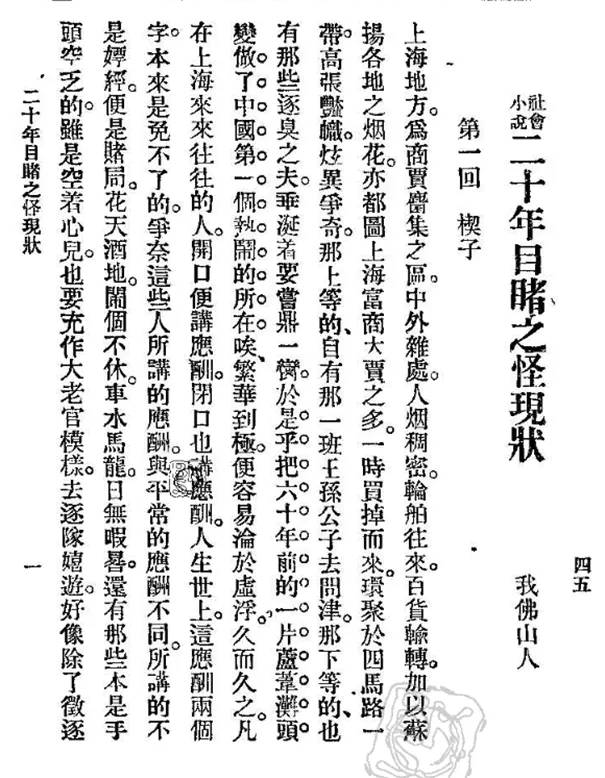 四五
社會小說 二十年目睹之怪現狀 我佛山人
第一回 楔子
上海地方。為商賈麕集之區。中外雜處。人烟稠密。輪舶往來。百貨輸轉。加以蘇
揚各地之烟花。亦都圖上海富商大賈之多。一時買掉而來。環聚於四馬路一
帶。高張豔幟。炫異爭奇。那上等的、自有那一班王孫公子去問津。那下等的、也
有那些逐臭之夫。垂涎着要嘗鼎一臠。於是乎把六十年前的一片蘆葦灘頭
變做了中國第一個熱鬧的所在。唉、繁華到極。便容易淪於虛浮。久而久之。凡
在上海來來往往的人。開口便講應酬。閉口也講應酬。人生世上。這應酬兩個
字。本來是免不了的。爭奈這些人所講的應酬。與平常的應酬不同。所講的不
是嫖經。便是賭局。花天酒地。鬧個不休。車水馬龍。日無暇晷。還有那些本是手
頭空乏的。雖是空着心兒。也要充作大老官模樣。去逐隊嬉遊。好像除了徵逐
二十年目睹之怪現狀 一